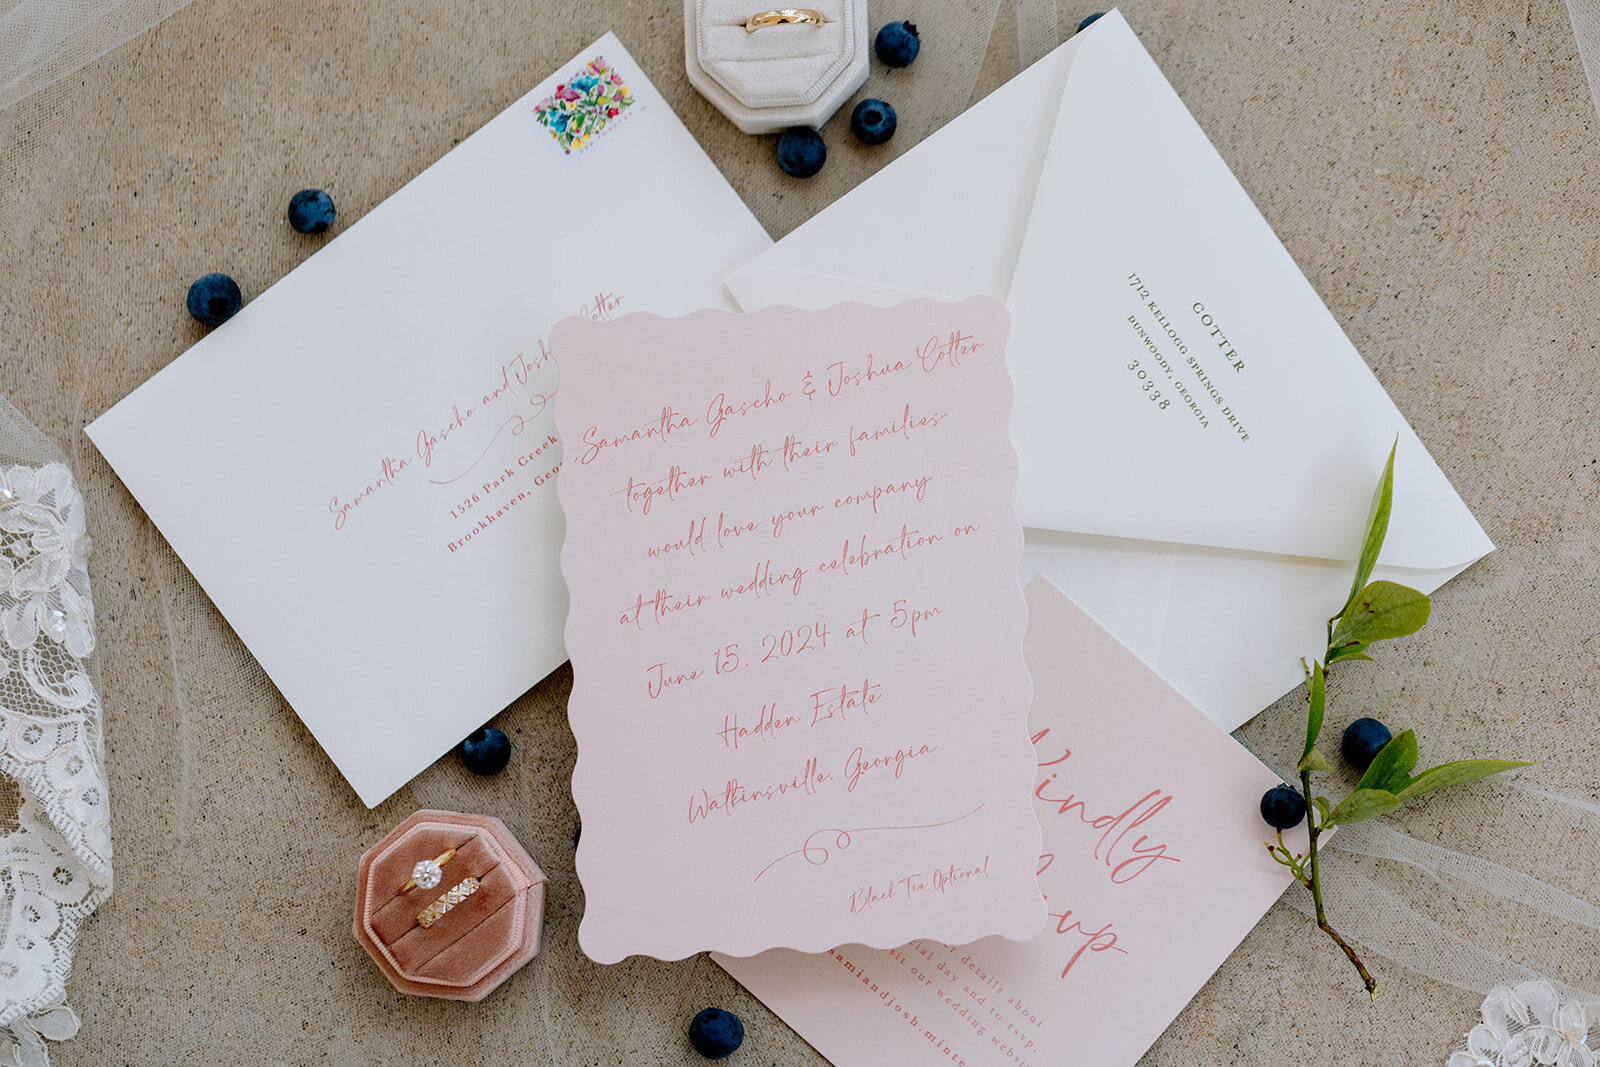 Samantha Gascho and Josh Cotter
1526 Park Creek
Brookhaven, Geo
COTTER
1712 KELLOGG SPRINGS DRIVE
DUNWOODY, GEORGIA
30338
Samantha Gascho & Joshua Cotter
together with their families
would love your company
at their wedding celebration on
June 15, 2024 at 5pm
Hadden Estate
Watkinsville, Georgia
Black Tie Optional
Kindly
details about
cial day and to rsvp,
sit our wedding websi
samiandjosh.minte